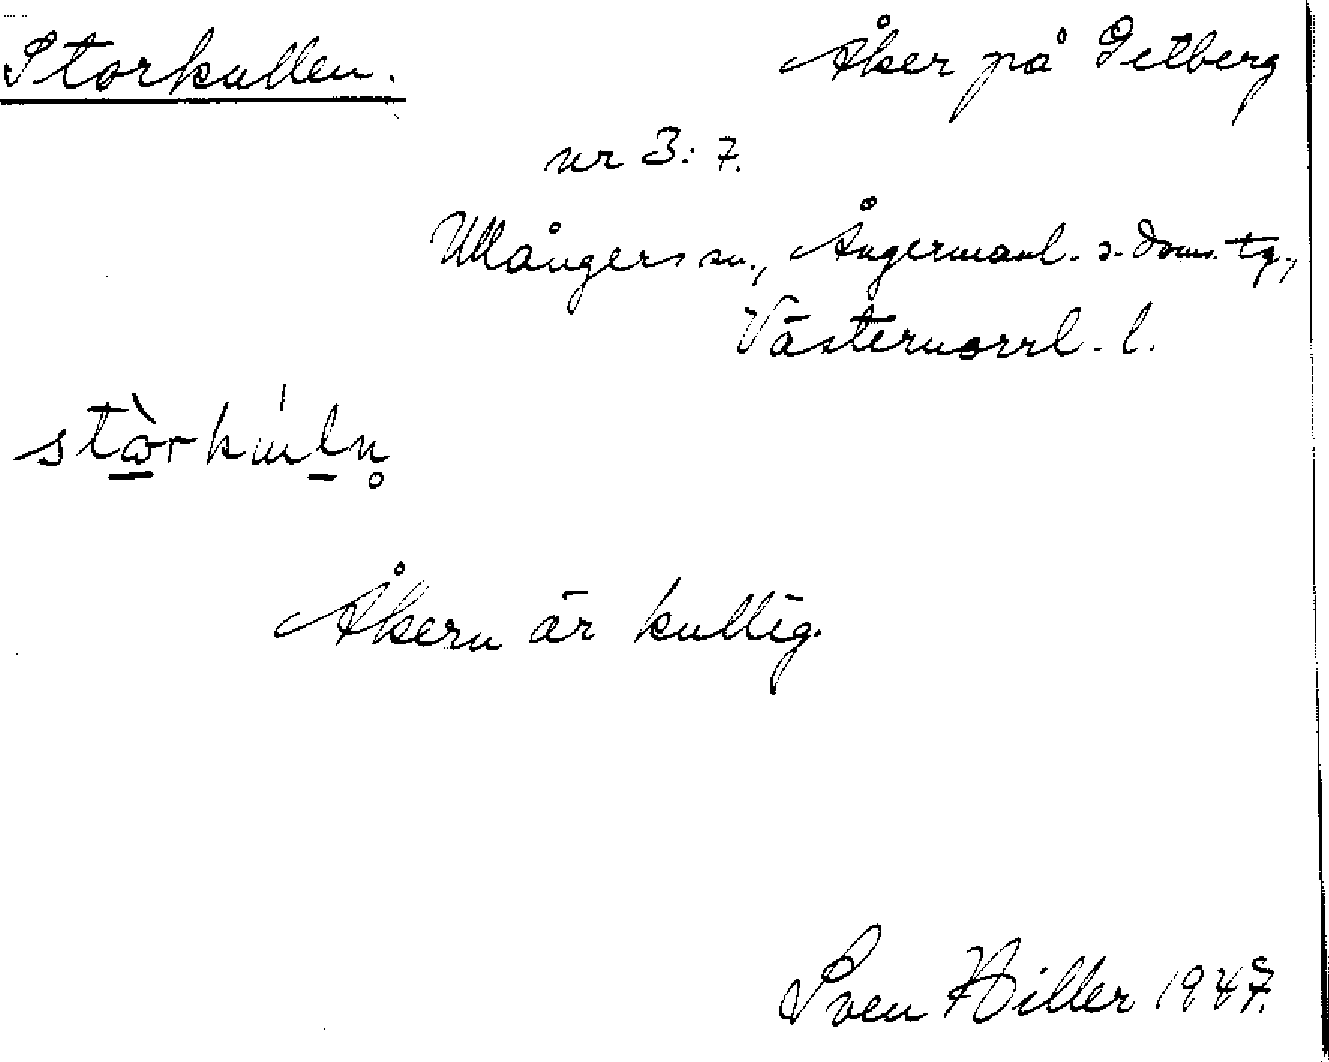 Storkullen. Åker på Getberg
nr 3:7.
Ullångers sn., Ångermanl. s. doms. tg.,
Västernorrl. l.
Åkern är kullig.
Sven Hiller 1947.